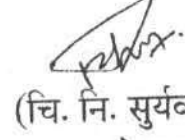 (चि. नि. सुर्यव